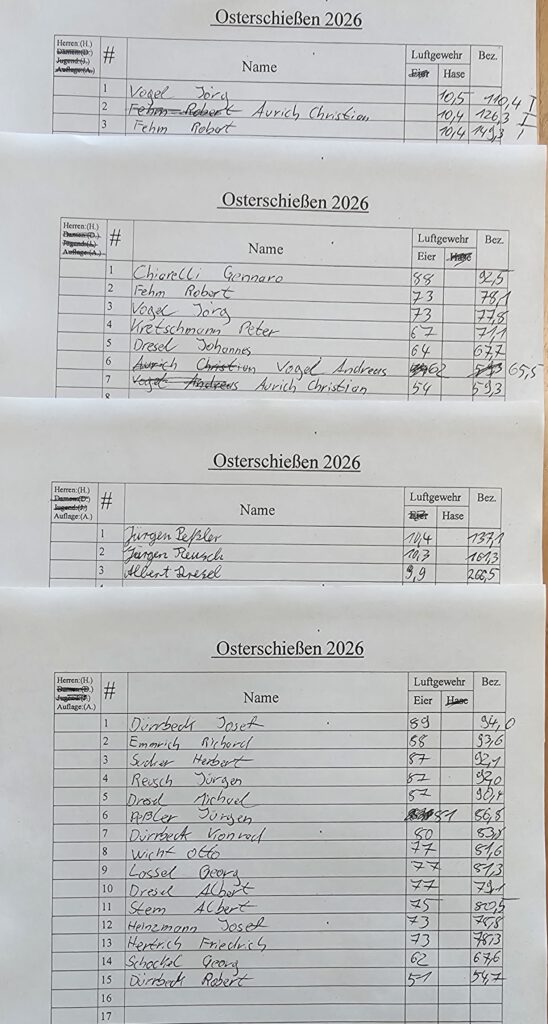 Osterschießen 2026
Herren:(H.) Luftgewehr Bez.
Damen:(D.) # Name Eier Hase
Jugend:(J.)
Auflage:(A.)
1 Vogel Jörg 10,5 110,4 I
2 Fehm Robert Aurich Christian 10,4 126,3 I
3 Fehm Robert 10,4 149,3 I
Osterschießen 2026
Herren:(H.) Luftgewehr Bez.
Damen:(D.) # Name Eier Hase
Jugend:(J.)
Auflage:(A.)
1 Chiarelli Gennaro 88 92,5
2 Fehm Robert 73 78,1
3 Vogel Jörg 73 77,8
4 Kretschmann Peter 67 71,1
5 Dresel Johannes 64 67,7
6 Aurich Christian Vogel Andreas 62 65,5
7 Vogel Andreas Aurich Christian 54 59,3
Osterschießen 2026
Herren:(H.) Luftgewehr Bez.
Damen:(D.) # Name Eier Hase
Jugend:(J.)
Auflage:(A.)
1 Jürgen Peßler 10,4 137,1
2 Jürgen Reusch 10,3 161,3
3 Albert Dresel 9,9 266,5
Osterschießen 2026
Herren:(H.) Luftgewehr Bez.
Damen:(D.) # Name Eier Hase
Jugend:(J.)
Auflage:(A.)
1 Dürrbeck Josef 89 94,0
2 Emmrich Richard 88 93,6
3 Herbert 87 92,1
4 Reusch Jürgen 87 92,0
5 Dresel Michael 87 90,4
6 Peßler Jürgen 81 86,8
7 Dürrbeck Konrad 80 83,8
8 Wicht Otto 77 81,6
9 Lossel Georg 77 81,3
10 Dresel Albert 77 79,1
11 Stem Albert 75 80,5
12 Heinzmann Josef 73 78,8
13 Hertrich Friedrich 73 78,3
14 Schockel Georg 62 67,6
15 Dürrbeck Robert 51 54,7
16
17